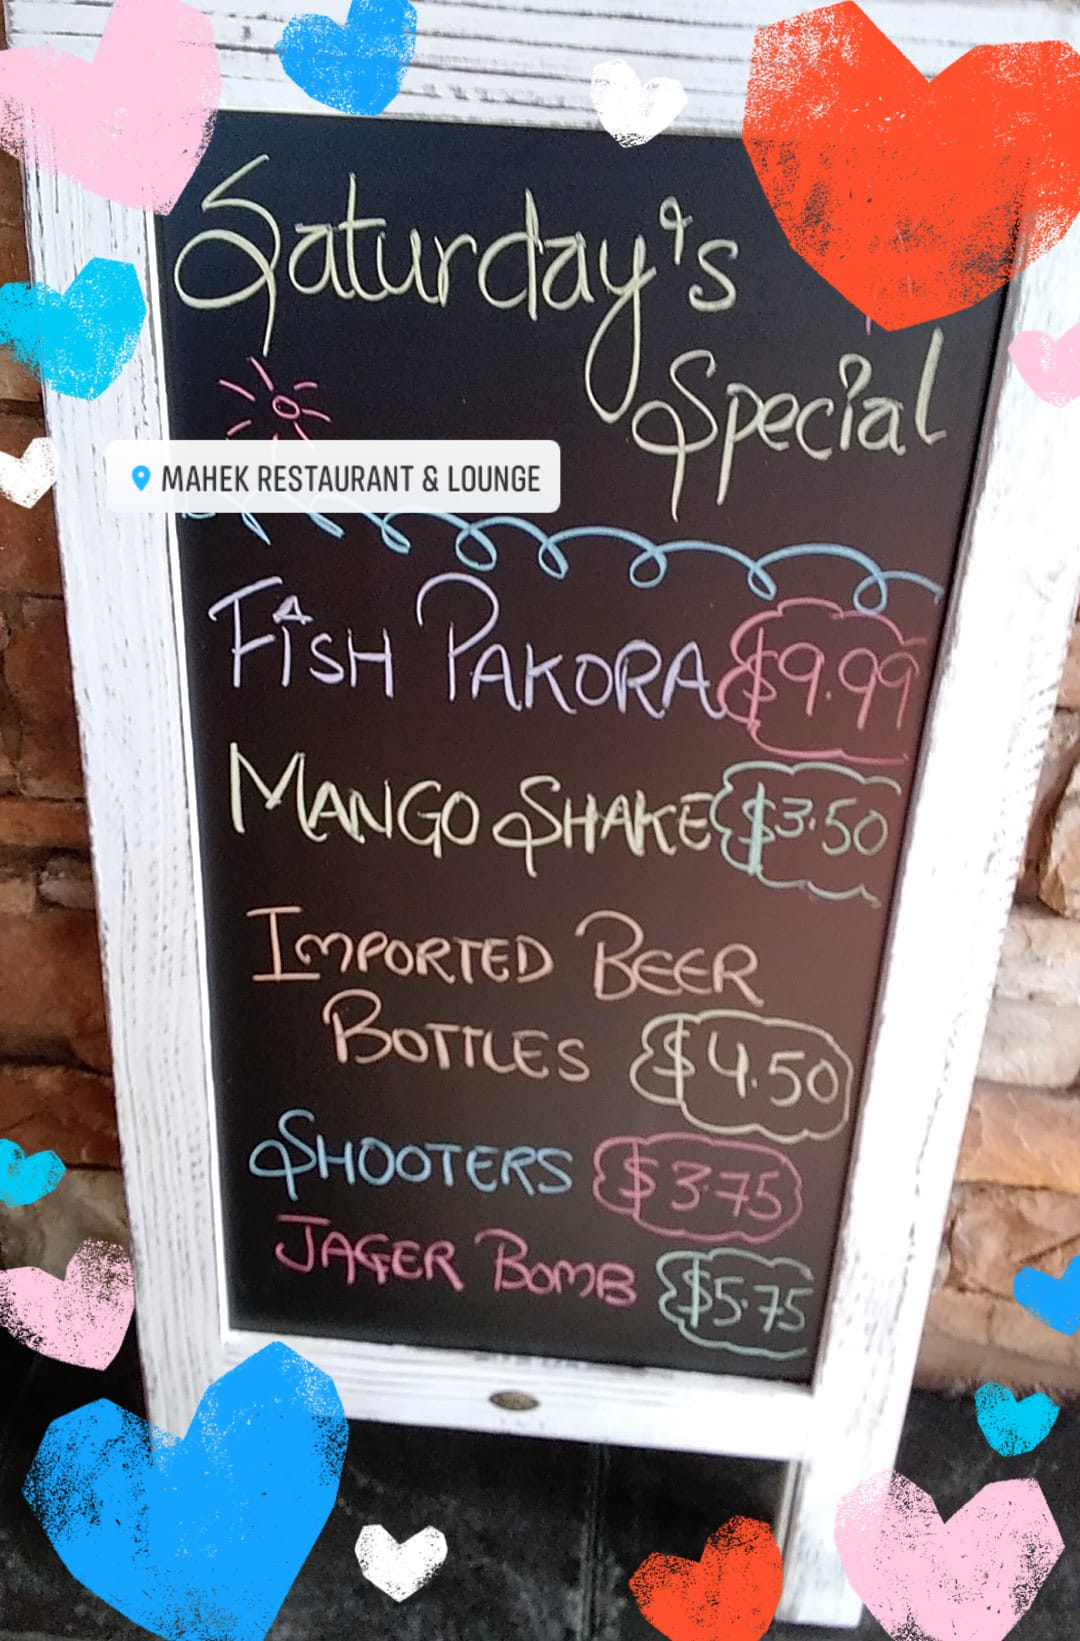 Saturday's
Special
MAHEK RESTAURANT & LOUNGE
FISH PAKORA $9.99
MANGO SHAKE $3.50
IMPORTED BEER
BOTTLES $4.50
SHOOTERS $3.75
JAGER BOMB $5.75